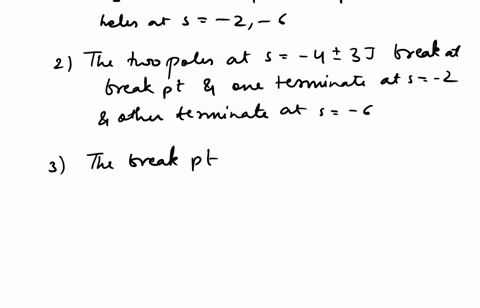 holes at s = -2, -6
2) The two poles at s = -4 ± 3J break at
break pt & one terminate at s = -2
& other terminate at s = -6
3) The break pt